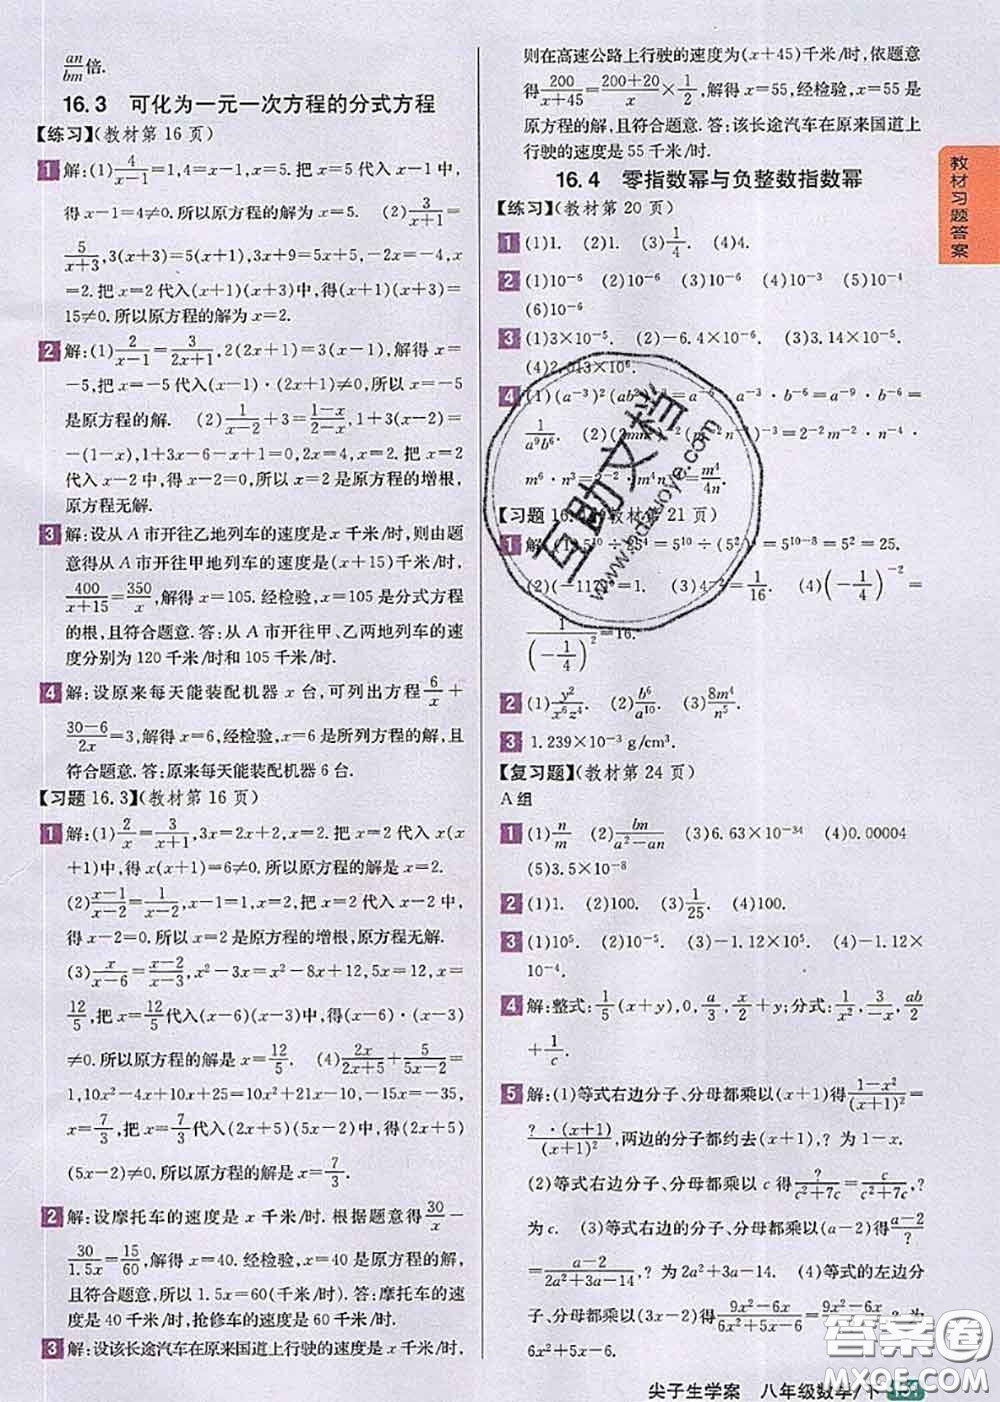 an/bm倍.
16.3 可化为一元一次方程的分式方程
【练习】(教材第 16 页)
1 解:(1)4/(x-1)=1,4=x-1,x=5.把 x=5代入 x-1中,
得 x-1=4≠0.所以原方程的解为 x=5. (2)3/(x+1)=
5/(x+3),3(x+3)=5(x+1),3x+9=5x+5,-2x=-4,x
=2.把 x=2代入(x+1)(x+3)中,得(x+1)(x+3)=
15≠0.所以原方程的解为 x=2.
2 解:(1)2/(x-1)=3/(2x+1),2(2x+1)=3(x-1).解得 x
=-5,把 x=-5代入(x-1)·(2x+1)≠0,所以 x=-5
是原方程的解. (2)1/(x-2)+3=(1-x)/(2-x),1+3(x-2)=
-(1-x),1+3x-6-x+1=0,-4+2x=0,x=2.把 x=2
代入 x-2中,得 x-2=0.所以 x=2是原方程的增根,
原方程无解.
3 解:设从 A 市开往乙地列车的速度是 x 千米/时,则由题
意得从 A 市开往甲地列车的速度是(x+15)千米/时,
400/(x+15)=350/x,解得 x=105.经检验,x=105是分式方程
的根,且符合题意.答:从 A 市开往甲、乙两地列车的速
度分别为 120 千米/时和 105 千米/时.
4 解:设原来每天能装配机器 x 台,可列出方程 6/x+
(30-6)/2x=3,解得 x=6,经检验,x=6是所列方程的解,且
符合题意.答:原来每天能装配机器 6 台.
【习题 16.3】(教材第 16 页)
1 解:(1)2/x=3/(x+1),3x=2x+2,x=2.把 x=2代入 x(x
+1)中,得 x(x+1)=6≠0.所以原方程的解是 x=2.
(2)(x-1)/(x-2)=1/(x-2),x-1=1,x=2.把 x=2代入 x-2中,
得 x-2=0.所以 x=2是原方程的增根,原方程无解.
(3)x/(x-6)=(x-2)/(x-3),x²-3x=x²-8x+12,5x=12,x=
12/5,把 x=12/5代入(x-6)(x-3)中,得(x-6)(x-3)
≠0.所以原方程的解是 x=12/5. (4)2x/(2x+5)+5/(5x-2)=
1,10x²-4x+10x+25=10x²+21x-10,-15x=-35,
x=7/3,把 x=7/3代入(2x+5)(5x-2)中,得(2x+5)
(5x-2)≠0.所以原方程的解是 x=7/3.
2 解:设摩托车的速度是 x 千米/时.根据题意得 30/x-
30/1.5x=15/60,解得 x=40.经检验,x=40是原方程的解,
且符合题意,所以 1.5x=60(千米/时).答:摩托车的速
度是 40 千米/时,抢修车的速度是 60 千米/时.
3 解:设该长途汽车在原来国道上行驶的速度是 x 千米/时,
则在高速公路上行驶的速度为(x+45)千米/时,依题意
得 200/(x+45)=(200+20)/x×1/2,解得 x=55,经检验,x=55是
原方程的解,且符合题意.答:该长途汽车在原来国道上
行驶的速度是 55 千米/时.
16.4 零指数幂与负整数指数幂
【练习】(教材第 20 页)
1 (1)1. (2)1. (3)1/4. (4)4.
2 (1)10⁻⁶ (2)10⁻⁶ (3)10⁻⁶ (4)10⁻³ (5)10⁻⁴
(6)10⁻⁶
3 (1)3×10⁻⁵. (2)-6.4×10⁻⁶. (3)3.14×10⁻⁵.
(4)2.013×10⁶.
4 (1)(a⁻³)²(ab²)⁻³=a⁻⁶·a⁻³·b⁻⁶=a⁻⁹·b⁻⁶=
1/a⁹b⁶. =2⁻²m⁻²·n⁻
m⁶·n³=2⁻²·m⁴n⁻¹=m⁴/4n.
【习题 16.4】(教材第 21 页)
1 解:(1)5¹⁰÷25⁴=5¹⁰÷(5²)⁴=5¹⁰⁻⁸=5²=25.
(2)(-117)⁰=1. (3)4⁻²=1/16. (4)(-1/4)⁻²=
1/(-1/4)²=16.
2 (1)y²/x⁶z⁴. (2)b⁶/a¹⁰. (3)8m⁴/n⁵.
3 1.239×10⁻³ g/cm³.
【复习题】(教材第 24 页)
A 组
1 (1)n/m (2)bn/(a²-an) (3)6.63×10⁻³⁴ (4)0.00004
(5)3.5×10⁻⁸
2 (1)1. (2)100. (3)1/25. (4)100.
3 (1)10⁵. (2)10⁻⁵. (3)-1.12×10⁵ (4)-1.12×
10⁻⁴.
4 解:整式:1/5(x+y),0,a/3,x/π+y;分式:1/x²,3/-x,ab/2
+1/c.
5 解:(1)等式右边分子、分母都乘以(x+1)得(1-x²)/(x+1)²=
?·(x+1)/(x+1)²,两边的分子都约去(x+1),?为 1-x.
(2)等式右边的分子、分母都乘以 c 得?/(c²+7c)=c/(c²+7c),?
为 c. (3)等式右边的分子、分母都乘以(a-2)得(a-2)/?
=(a-2)/(2a²+3a-14),?为 2a²+3a-14. (4)等式的左边分
子、分母都乘以(3x-2)得(9x²-6x)/(6x²+5x-6)=
教材习题答案
尖子生学案 八年级数学/下 151
互助文档
www.hdzuoye.com
答案卷
MXQE.COM